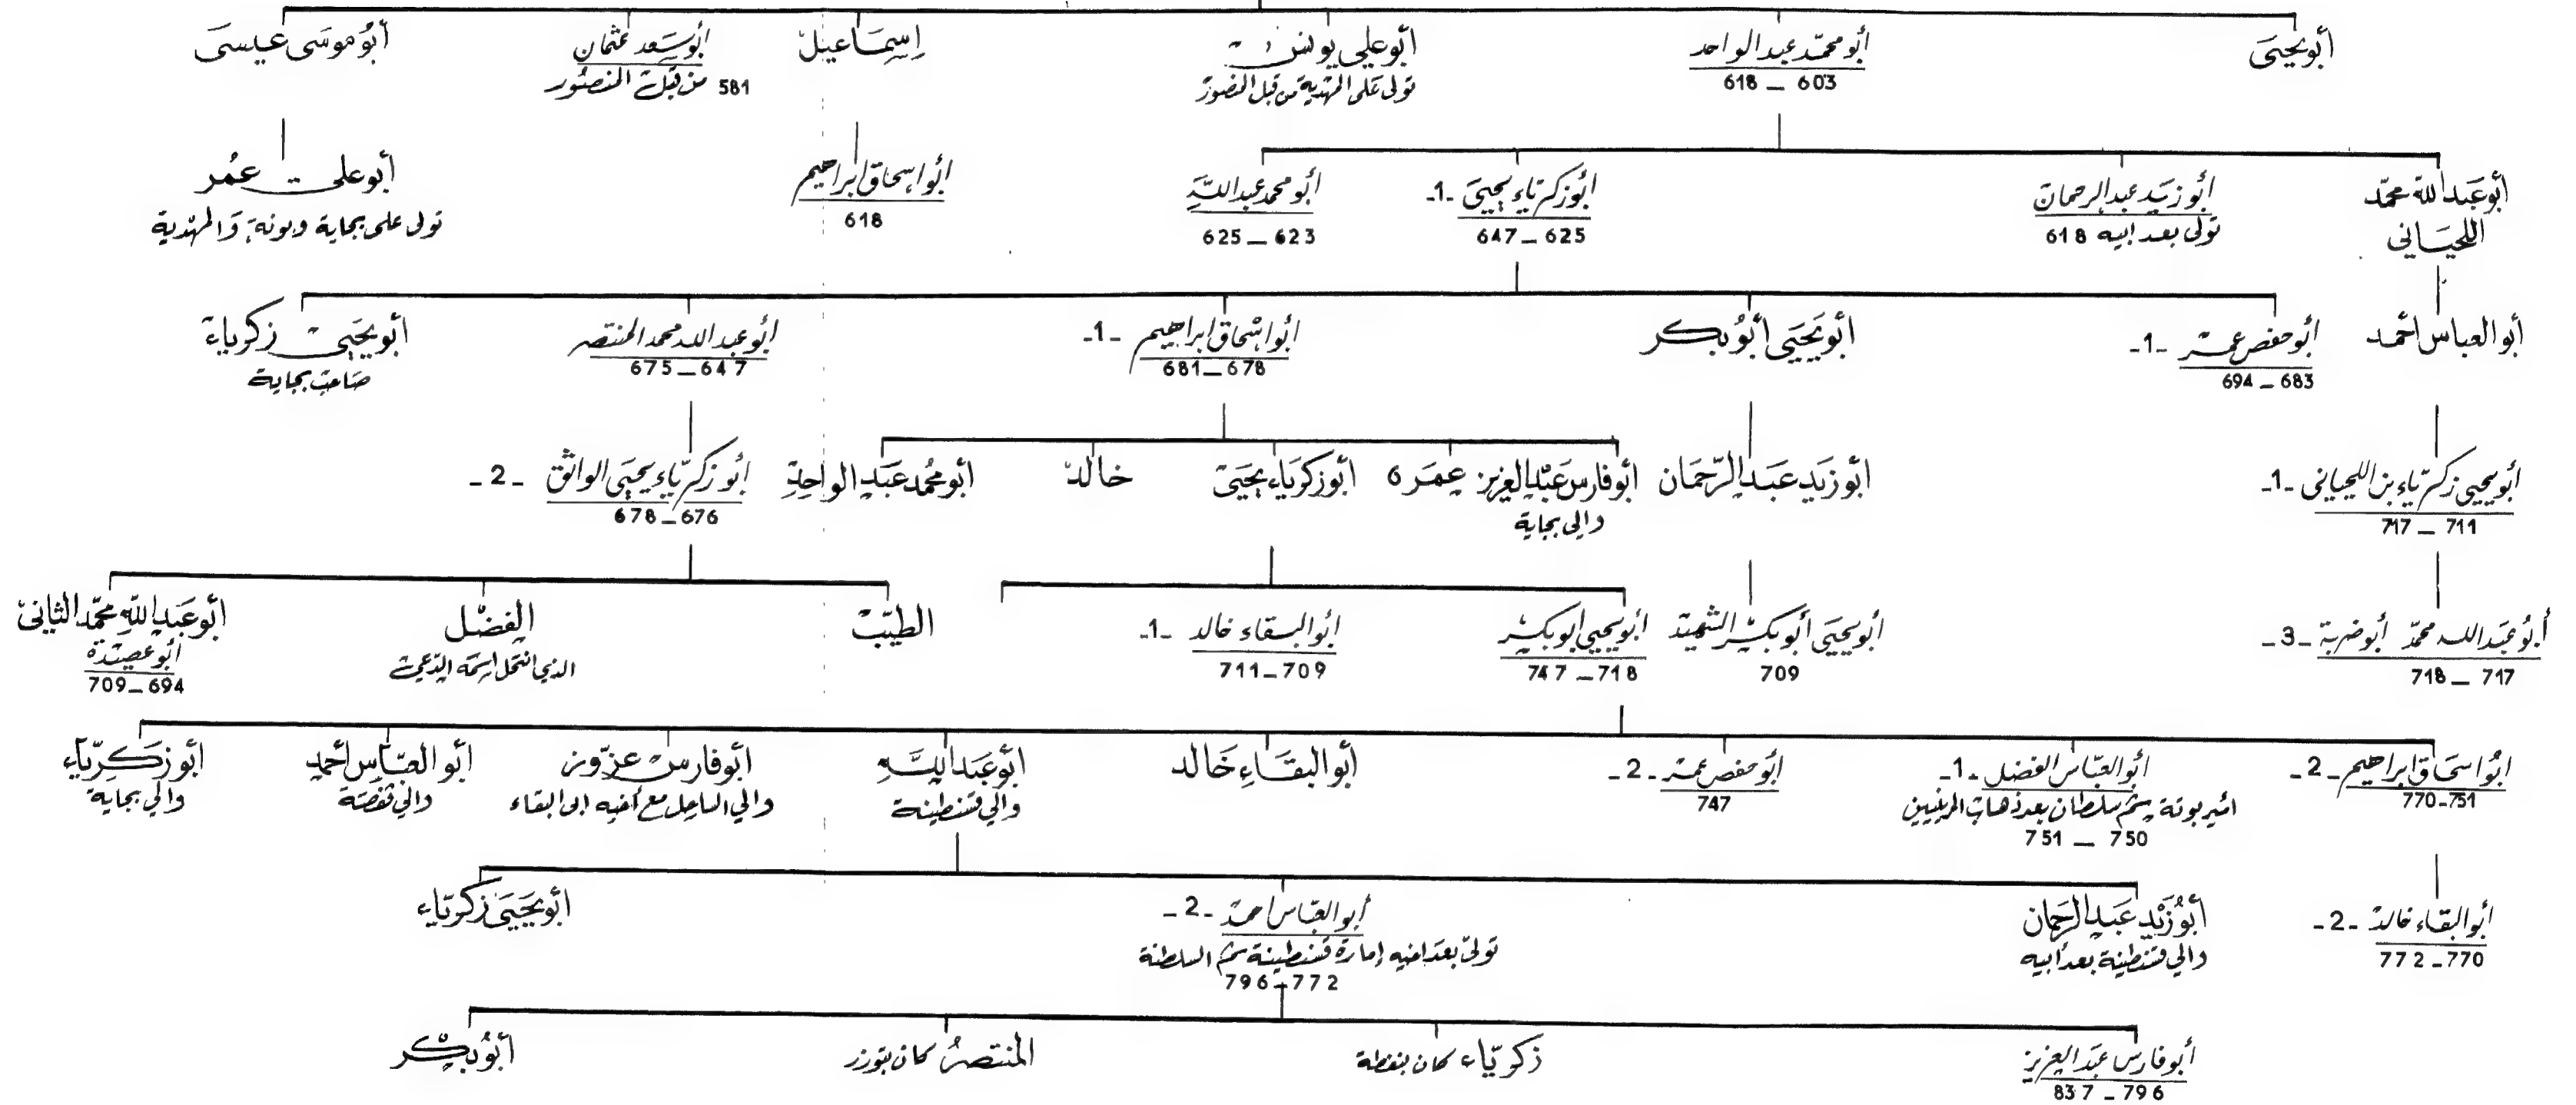 أبو يحيى
أبو محمد عبد الواحد
603 – 618
أبو علي يونس
تولى على المهدية من قبل المنصور
إسماعيل
أبو سعد عثمان
581 من قبل المنصور
أبو موسى عيسى
أبو عبد الله محمد
اللحياني
أبو زيد عبد الرحمان
تولى بعد ابيه 618
أبو زكرياء يحيى -1-
625 – 647
أبو محمد عبد الله
623 – 625
أبو اسحاق ابراهيم
618
أبو علي عمر
تولى على بجاية وبونة والمهدية
أبو العباس أحمد
أبو حفص عمر -1-
683 – 694
أبو يحيى أبو بكر
أبو اسحاق ابراهيم -1-
678 – 681
أبو عبد الله محمد المنتصر
647 – 675
أبو يحيى زكرياء
صاحب بجاية
أبو يحيى زكرياء بن اللحياني -1-
711 – 717
أبو زيد عبد الرحمان
أبو فارس عبد العزيز
والي بجاية
عمر 6
أبو زكرياء يحيى
خالد
أبو محمد عبد الواحد
أبو زكرياء يحيى الواثق -2-
676 – 678
أبو عبد الله محمد أبو ضربة -3-
717 – 718
أبو يحيى أبو بكر الشهيد
709
أبو يحيى ابو بكر
718 – 747
أبو البقاء خالد -1-
709 – 711
الطيب
الفضل
الذي انتحل اسمه الدعي
أبو عبد الله محمد الثاني
أبو عصيدة
694 – 709
ابو اسحاق ابراهيم -2-
751-770
أبو العباس الفضل -1-
امير بونة ثم سلطان بعد ذهاب المرينيين
750 – 751
أبو حفص عمر -2-
747
أبو البقاء خالد
أبو عبد الله
والي قسنطينة
أبو فارس عزوز
والي الساحل مع أخيه ابي البقاء
أبو العباس أحمد
والي قفصة
أبو زكرياء
والي بجاية
أبو البقاء خالد -2-
770-772
أبو زيد عبد الرحمان
والي قسنطينة بعد أبيه
أبو العباس احمد -2-
تولى بعد اخيه إمارة قسنطينة ثم السلطنة
772-796
أبو يحيى زكرياء
أبو فارس عبد العزيز
796 – 837
زكرياء كان بنفطة
المنتصر كان بتوزر
أبو بكر